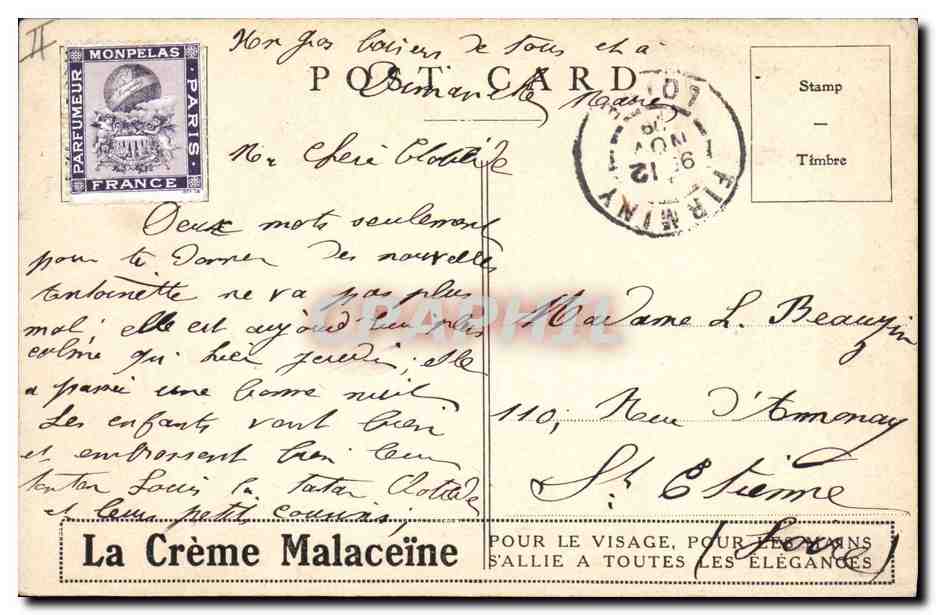 II
MONPELAS
PARFUMEUR
PARIS
FRANCE
gros baisers de tous et à
POST CARD
Dimanche
Stamp
Timbre
FIRMINY
LOIRE
12
NOV
Chère Clotilde
Deux mots seulement
pour te donner des nouvelles
Antoinette ne va pas plus
mal; elle est aujourd'hui plus
calme qu'hier jeudi, elle
a passé une bonne nuit
Les enfants vont bien
et embrassent bien leur
tonton Louis la tatan Clotilde
et leurs petits cousins,
CPAPHIL
Madame L. Beauzin
110, Rue d'Annonay
St Etienne
(Loire)
La Crème Malaceïne
POUR LE VISAGE, POUR LES MAINS
S'ALLIE A TOUTES LES ÉLÉGANCES